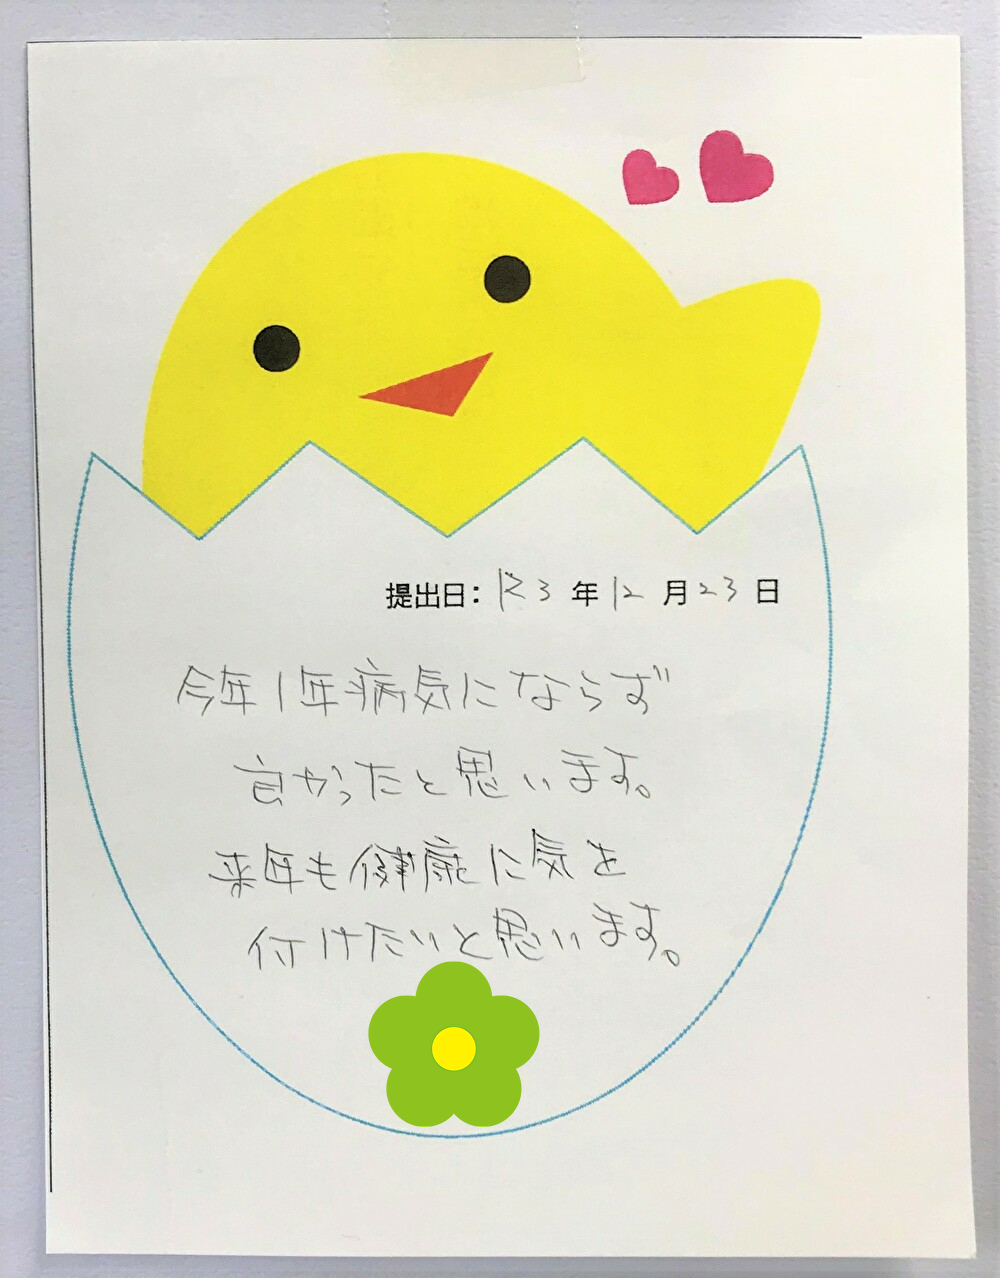 提出日: R3 年 12 月 23 日
今年1年病気にならず
良かったと思います。
来年も健康に気を
付けたいと思います。